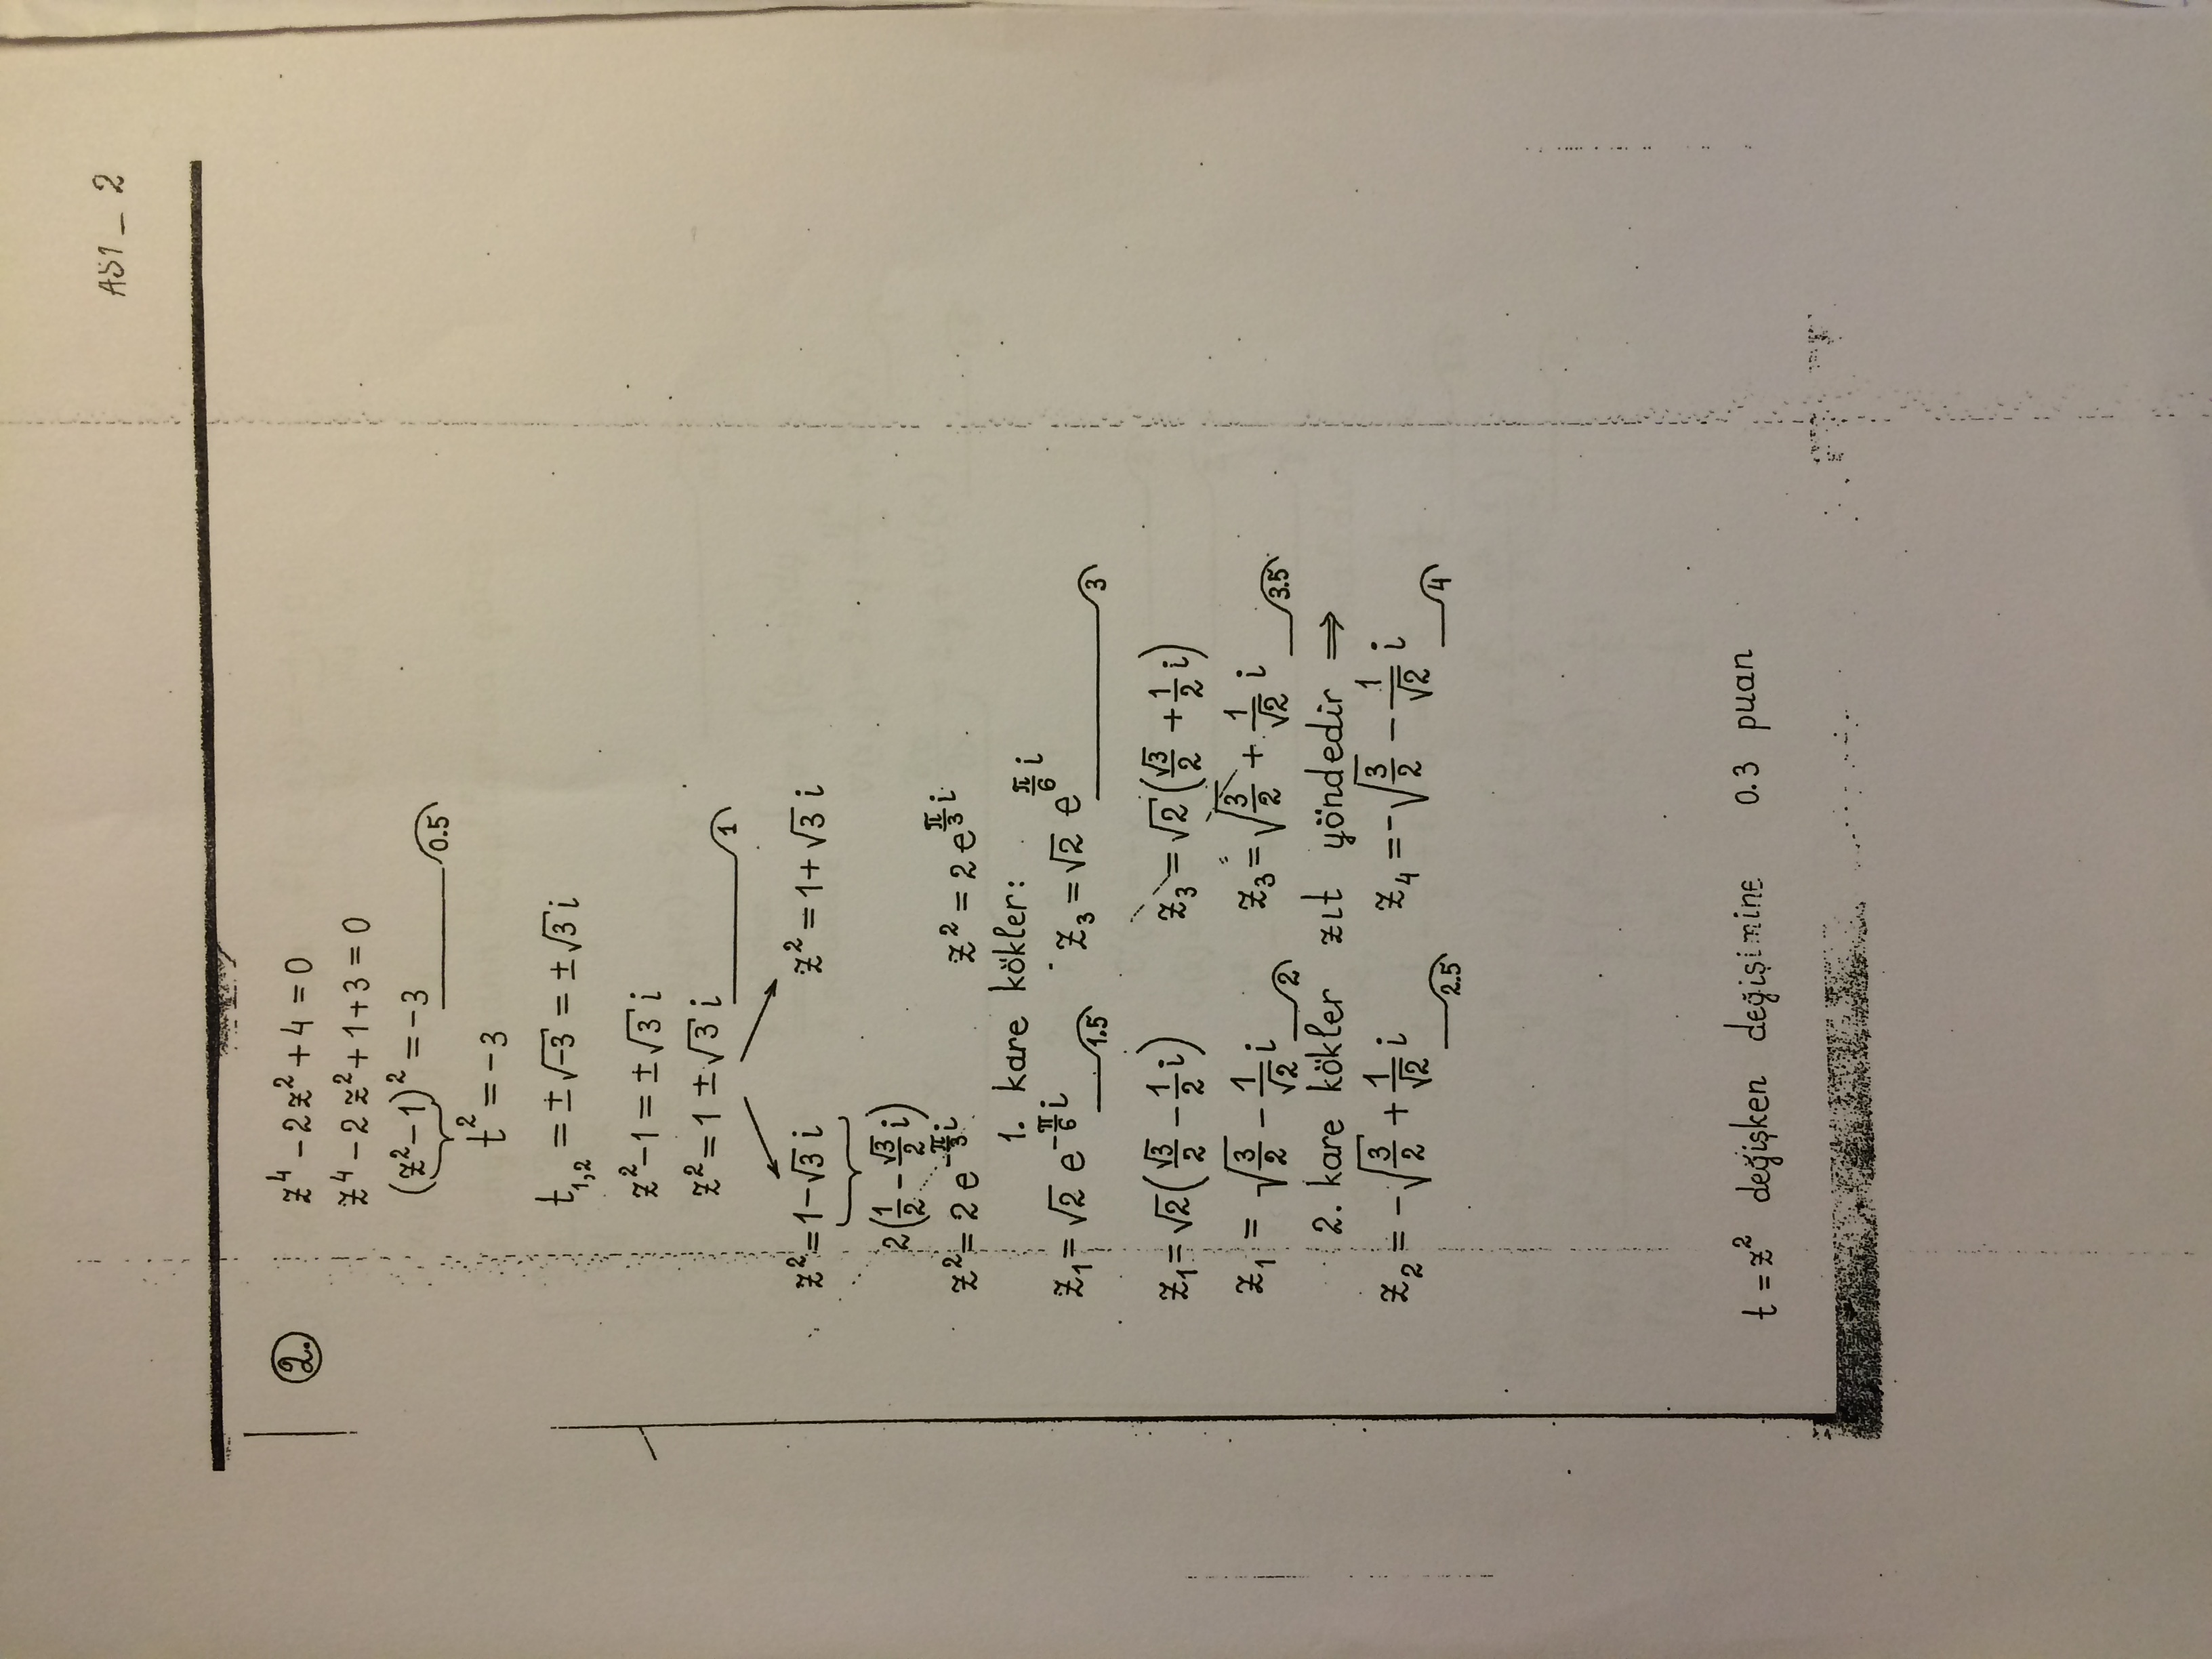 AS1 _ 2
2. z⁴ - 2z² + 4 = 0
z⁴ - 2z² + 1 + 3 = 0
(z² - 1)² = -3 0.5
t² = -3
t₁,₂ = ±√-3 = ±√3 i
z² - 1 = ±√3 i
z² = 1 ± √3 i 1
z² = 1 - √3 i z² = 1 + √3 i
2(1/2 - √3/2 i)
z² = 2 e^(-π/3 i) z² = 2 e^(π/3 i)
1. kare kökler:
z₁ = √2 e^(-π/6 i) 1.5 z₃ = √2 e^(π/6 i) 3
z₁ = √2(√3/2 - 1/2 i) z₃ = √2(√3/2 + 1/2 i)
z₁ = √(3/2) - 1/√2 i 2 z₃ = √(3/2) + 1/√2 i 3.5
2. kare kökler zıt yöndedir ⇒
z₂ = -√(3/2) + 1/√2 i 2.5 z₄ = -√(3/2) - 1/√2 i 4
t = z² değişken değişimine 0.3 puan